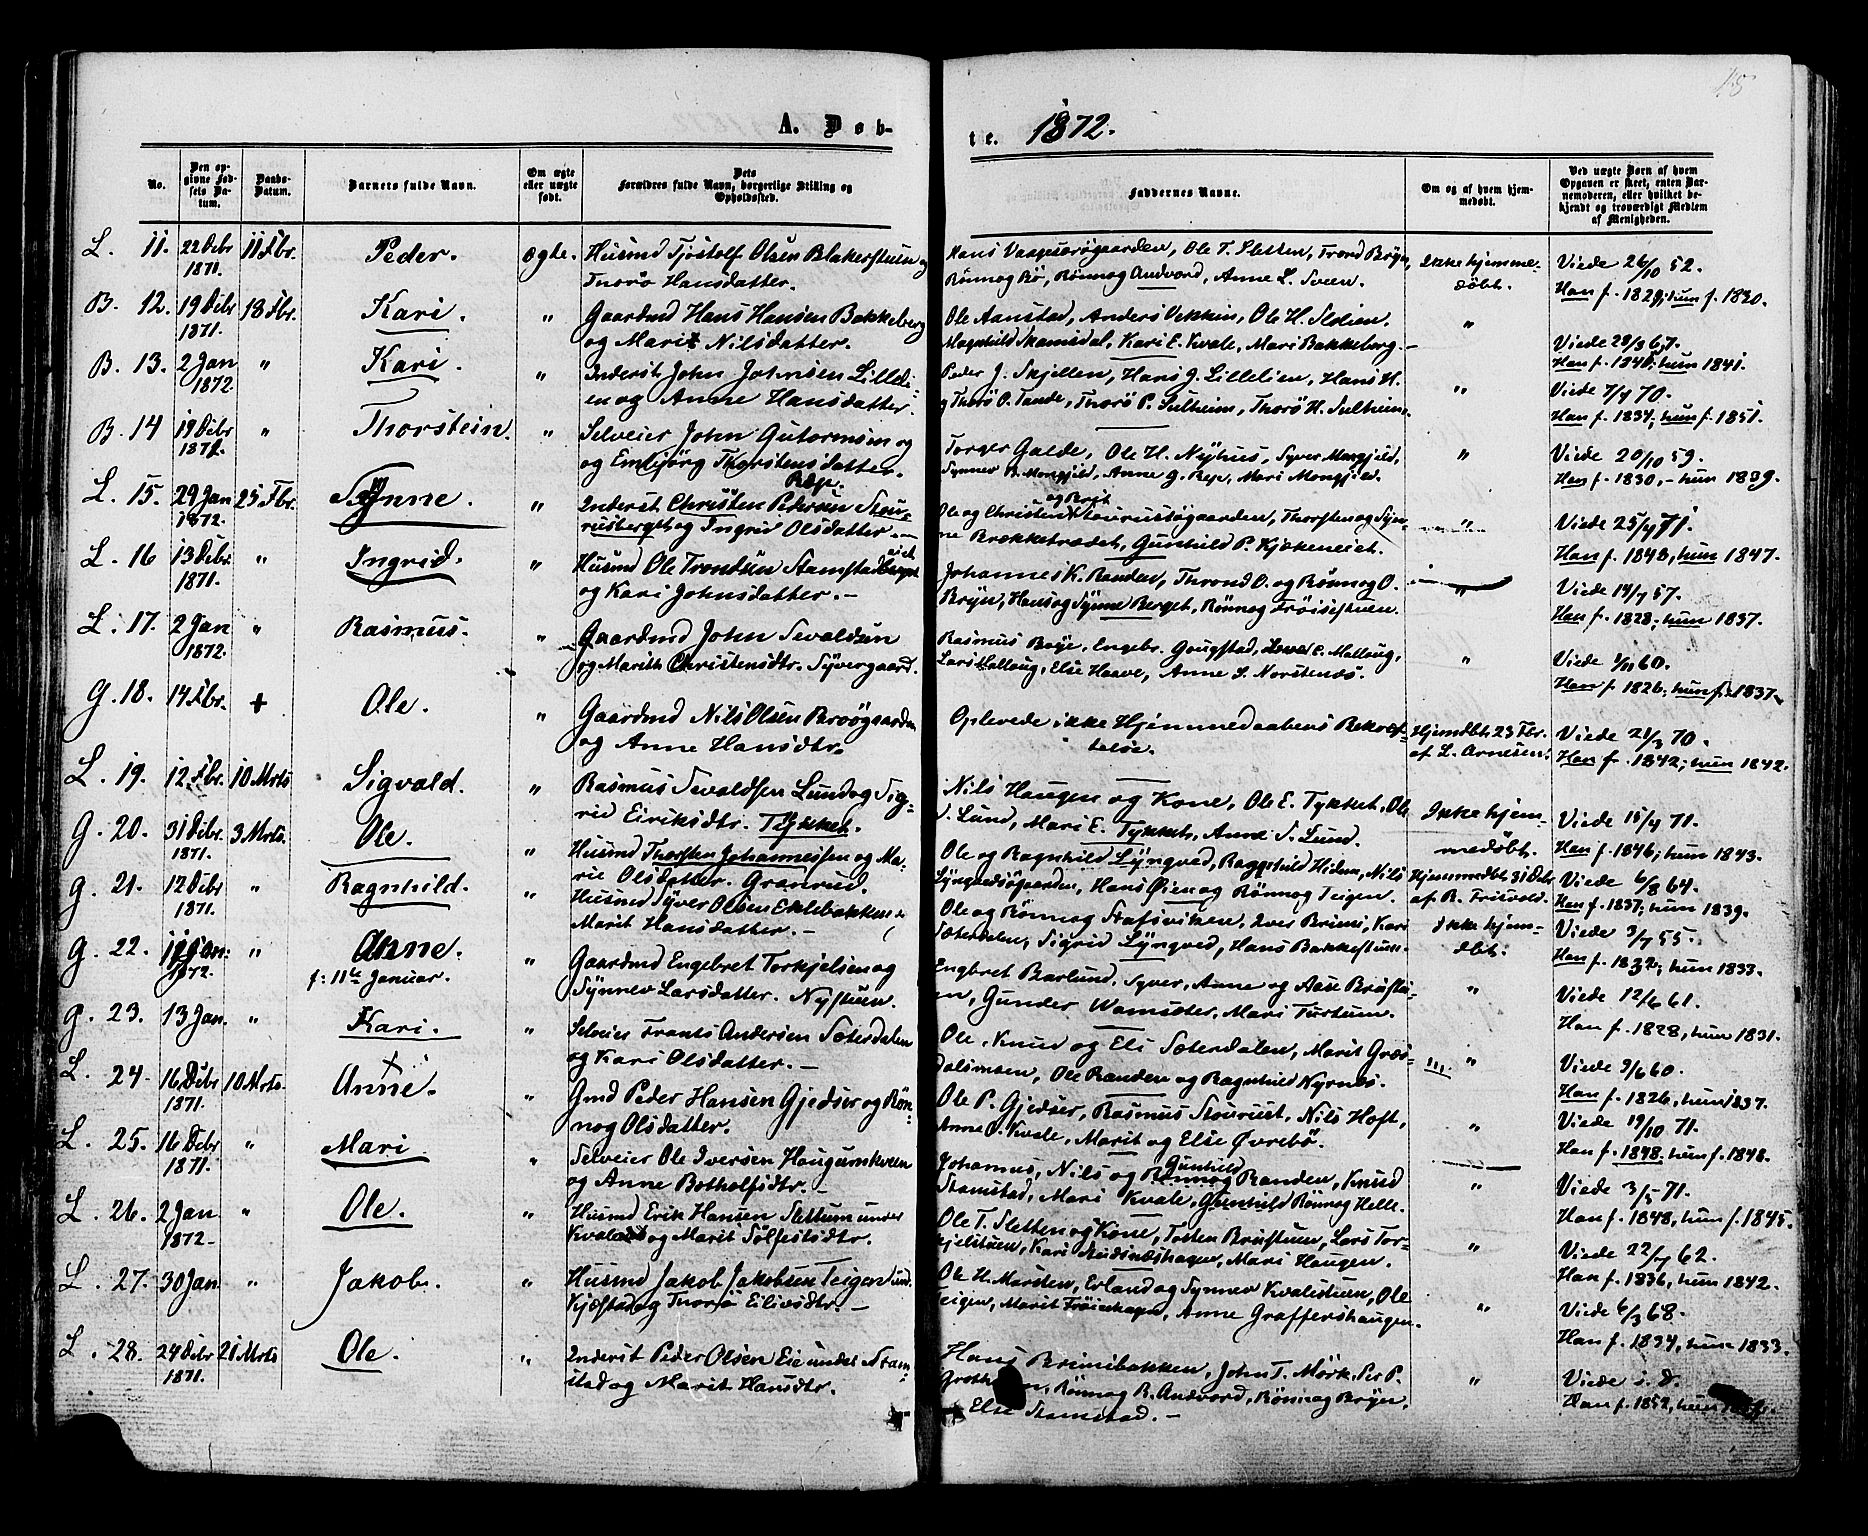 A. Døb-
te. 1872.
No.
Den opgivne Fødsels Datum.
Daabs-Datum.
Barnets fulde Navn.
Om ægte eller uægte født.
Dets Forældres fulde Navn, borgerlige Stilling og Opholdssted.
Faddernes Navne.
Om og af hvem hjemmedøbt.
Ved uægte Børn af hvem Opgaven er skeet, enten Barnemoderen, eller hvilket bekjendt og troværdigt Medlem af Menigheden.
L. 11. 22 Debr 1871. 11 Fbr. Peder. ægte. Husmd Tjøstolf Olsen Blakerstuen og
Thorø Hansdatter.
Ole T. Sletten, Trond Bryn,
Rønnog Bø, Rønnog Andvord, Anne L. Sveen.
Ikke hjemme-
døbt.
Viede 26/10 52.
Han f. 1829; hun f. 1820.
B. 12. 19 Debr 1871. 18 Fbr. Kari. " Gaardmd Hans Hansen Bakkeberg
og Marit Nilsdatter.
Ole Aanstad, Anders Vekkin, Ole H. Ildien.
Magnhild Skamsdal, Kari E. Kvale, Mari Bakkeberg.
"
Viede 28/3 67.
Han f. 1840; hun 1841.
B. 13. 2 Jan 1872 " Kari. " Inderst John Johnsen Lilleli-
en og Anne Hansdatter.
Peder J. Skjellen, Hans J. Lillelien, Hans H.
og Thorø O. Tande, Thorø P. Sulheim, Thorø H. Sulheim.
"
Viede 7/7 70.
Han f. 1834; hun f. 1851.
B. 14 19 Debr 1871. " Thorstein. " Selveier John Gutormsen og
og Embjørg Thorstensdatter.
Ræp.
Torger Galde, Ole H. Nyhus, Syver Mongjeld,
Synnev B. Mongjeld, Anne G. Rep, Mari Mongjeld.
"
Viede 20/10 59.
Han f. 1830, - hun 1839.
L. 15. 29 Jan 1872. 25 Fbr. Synne. " Inderst Christen Pedersen Stou-
rusberget og Ingrid Olsdatter.
og Brit
Ole og Christen Stourustøgaarden, Thorsten og Syn-
ne Brækketrædet, Gunhild P. Kjøkeneiet.
"
Viede 25/4 71.
Han f. 1848, hun 1847.
L. 16 13 Debr 1871. " Ingrid. " Husmd Ole Trondsen Stamstad
og Kari Johnsdatter.
Johannes K. Randen, Thrond O. og Rønnog O.
Bryn, Hans og Synne Berget, Rønnog Frøisestuen.
"
Viede 14/7 57.
Han f. 1828; hun 1837.
L. 17. 2 Jan 1872. " Rasmus. " Gaardmd John Sevaldsen
og Marith Christensdtr. Syvergaard.
Rasmus Bøje, Engebr. Gougstad, E. Mallaug,
Lars Mallaug, Else Haave, Anne S. Norstenæs.
"
Viede 1/11 60.
Han f. 1826; hun f. 1837.
G. 18. 14 Fbr. + Ole. " Gaardmd Nils Olsen Brøøgaarden
og Anne Hansdtr.
Oplevede ikke Hjemmedaabens Bekræf-
telse.
Hjemdbt. 23 Fbr.
af L. Arnesen.
Viede 21/3 70.
Han f. 1842; hun 1842.
L. 19. 12 Fbr. 10 Mrts Sigvald. " Rasmus Sevaldsen Lund og Sig-
rid Eiriksdtr. Tykket.
Nils Haugen og Kone, Ole E. Tykket, Ole
S. Lund, Mari E. Tykket, Anne S. Lund.
Ikke hjem-
medøbt.
Viede 15/4 71.
Han f. 1846; hun 1843.
G. 20. 31 Debr. 1871. 3 Mrts. Ole. " Husmd Thorsten Johannessen og Ma-
rie Olsdatter. Granrud.
Ole og Ragnhild Lyngved, Ragnhild Hidem, Nils
Lyngvedsøgaarden, Hans Øien og Rønnog Teigen.
Hjemmedbt. 31 Debr
af R. Frisvold.
Viede 6/8 64.
Han f. 1837; hun 1839.
G. 21. 12 Debr 1871. " Ragnhild. " Husmd Syver Olsen Eklebakken
Marit Hansdatter.
Ole og Rønnog Stafsviken, Iver Brimi, Kari
Sæterdalen, Sigrid Lyngved, Hans Bakkestuen.
Ikke hjem-
dbt.
Viede 3/7 55.
Han f. 1832; hun 1833.
G. 22. 11 Jan. 1872. " Anne.
f: 11te Januar.
" Gaardmd Engebret Torkjelsen og
Synnev Larsdatter. Nystuen.
Engbret Barlund, Syver, Anne og Aase Brustu-
en, Gunder Vamsæter, Mari Turtum.
"
Viede 12/6 61.
Han f. 1828, hun 1831.
G. 23. 13 Jan. " Kari. " Selveier Frants Andersen Sæterdalen
og Kari Olsdatter.
Ole, Knud og Eli Sæterdalen, Marit Græs-
dalsmoen, Ole Randen og Ragnhild Nyrnæs.
"
Viede 3/6 60.
Han f. 1826, hun 1837.
L. 24. 16 Debr 1871. 10 Mrts. Anne. " Gmd Peder Hansen Gjedser og Røn-
nog Olsdatter.
Ole P. Gjedser, Rasmus Stourust, Nils Hoft,
Anne O. Kvale, Marit og Else Øvrebø.
"
Viede 19/10 71.
Han f. 1848; hun f. 1848.
L. 25. 16 Debr 1871. " Mari " Selveier Ole Iversen Haugumkveen
og Anne Botholfsdtr.
Gunhild
Johannes, Nils og Rønnog Randen, Knud
Stamstad, Mari Kvale, Gunhild Rønnog Helle.
"
Viede 3/5 71.
Han f. 1848, hun f. 1845.
L. 26. 2 Jan 1872. " Ole. " Husmd Erik Hansen Slettum under
og Marit Sølfestsdtr.
Ole T. Sletten og Kone, Tosten Brustuen, Lars Tor-
kjelstuen, Kari Audsnæshagen, Mari Haugen.
"
Viede 22/7 62.
Han f. 1836, hun 1842.
L. 27. 30 Jan " Jakob. " Husmd Jakob Jakobsen Teigen und.
Kjæstad og Thorø Eilivsdtr.
Ole H. Marsten, Erland og Synnev Kvalestuen, Ole
Teigen, Marit Frøisehagen, Anne Graffershaugen.
"
Viede 6/3 68.
Han f. 1834, hun 1833.
L. 28. 24 Debr 1871. 21 Mrts Ole. " Inderst Peder Olsen Eie under Stam-
stad og Marit Hansdtr.
Hans Brimibakken, John T. Mørk, Per P.
Rønnog R. Andvord, Rønnog Bryn.
Else Stamstad.
"
Viede s. D.
Han f. 1852, hun